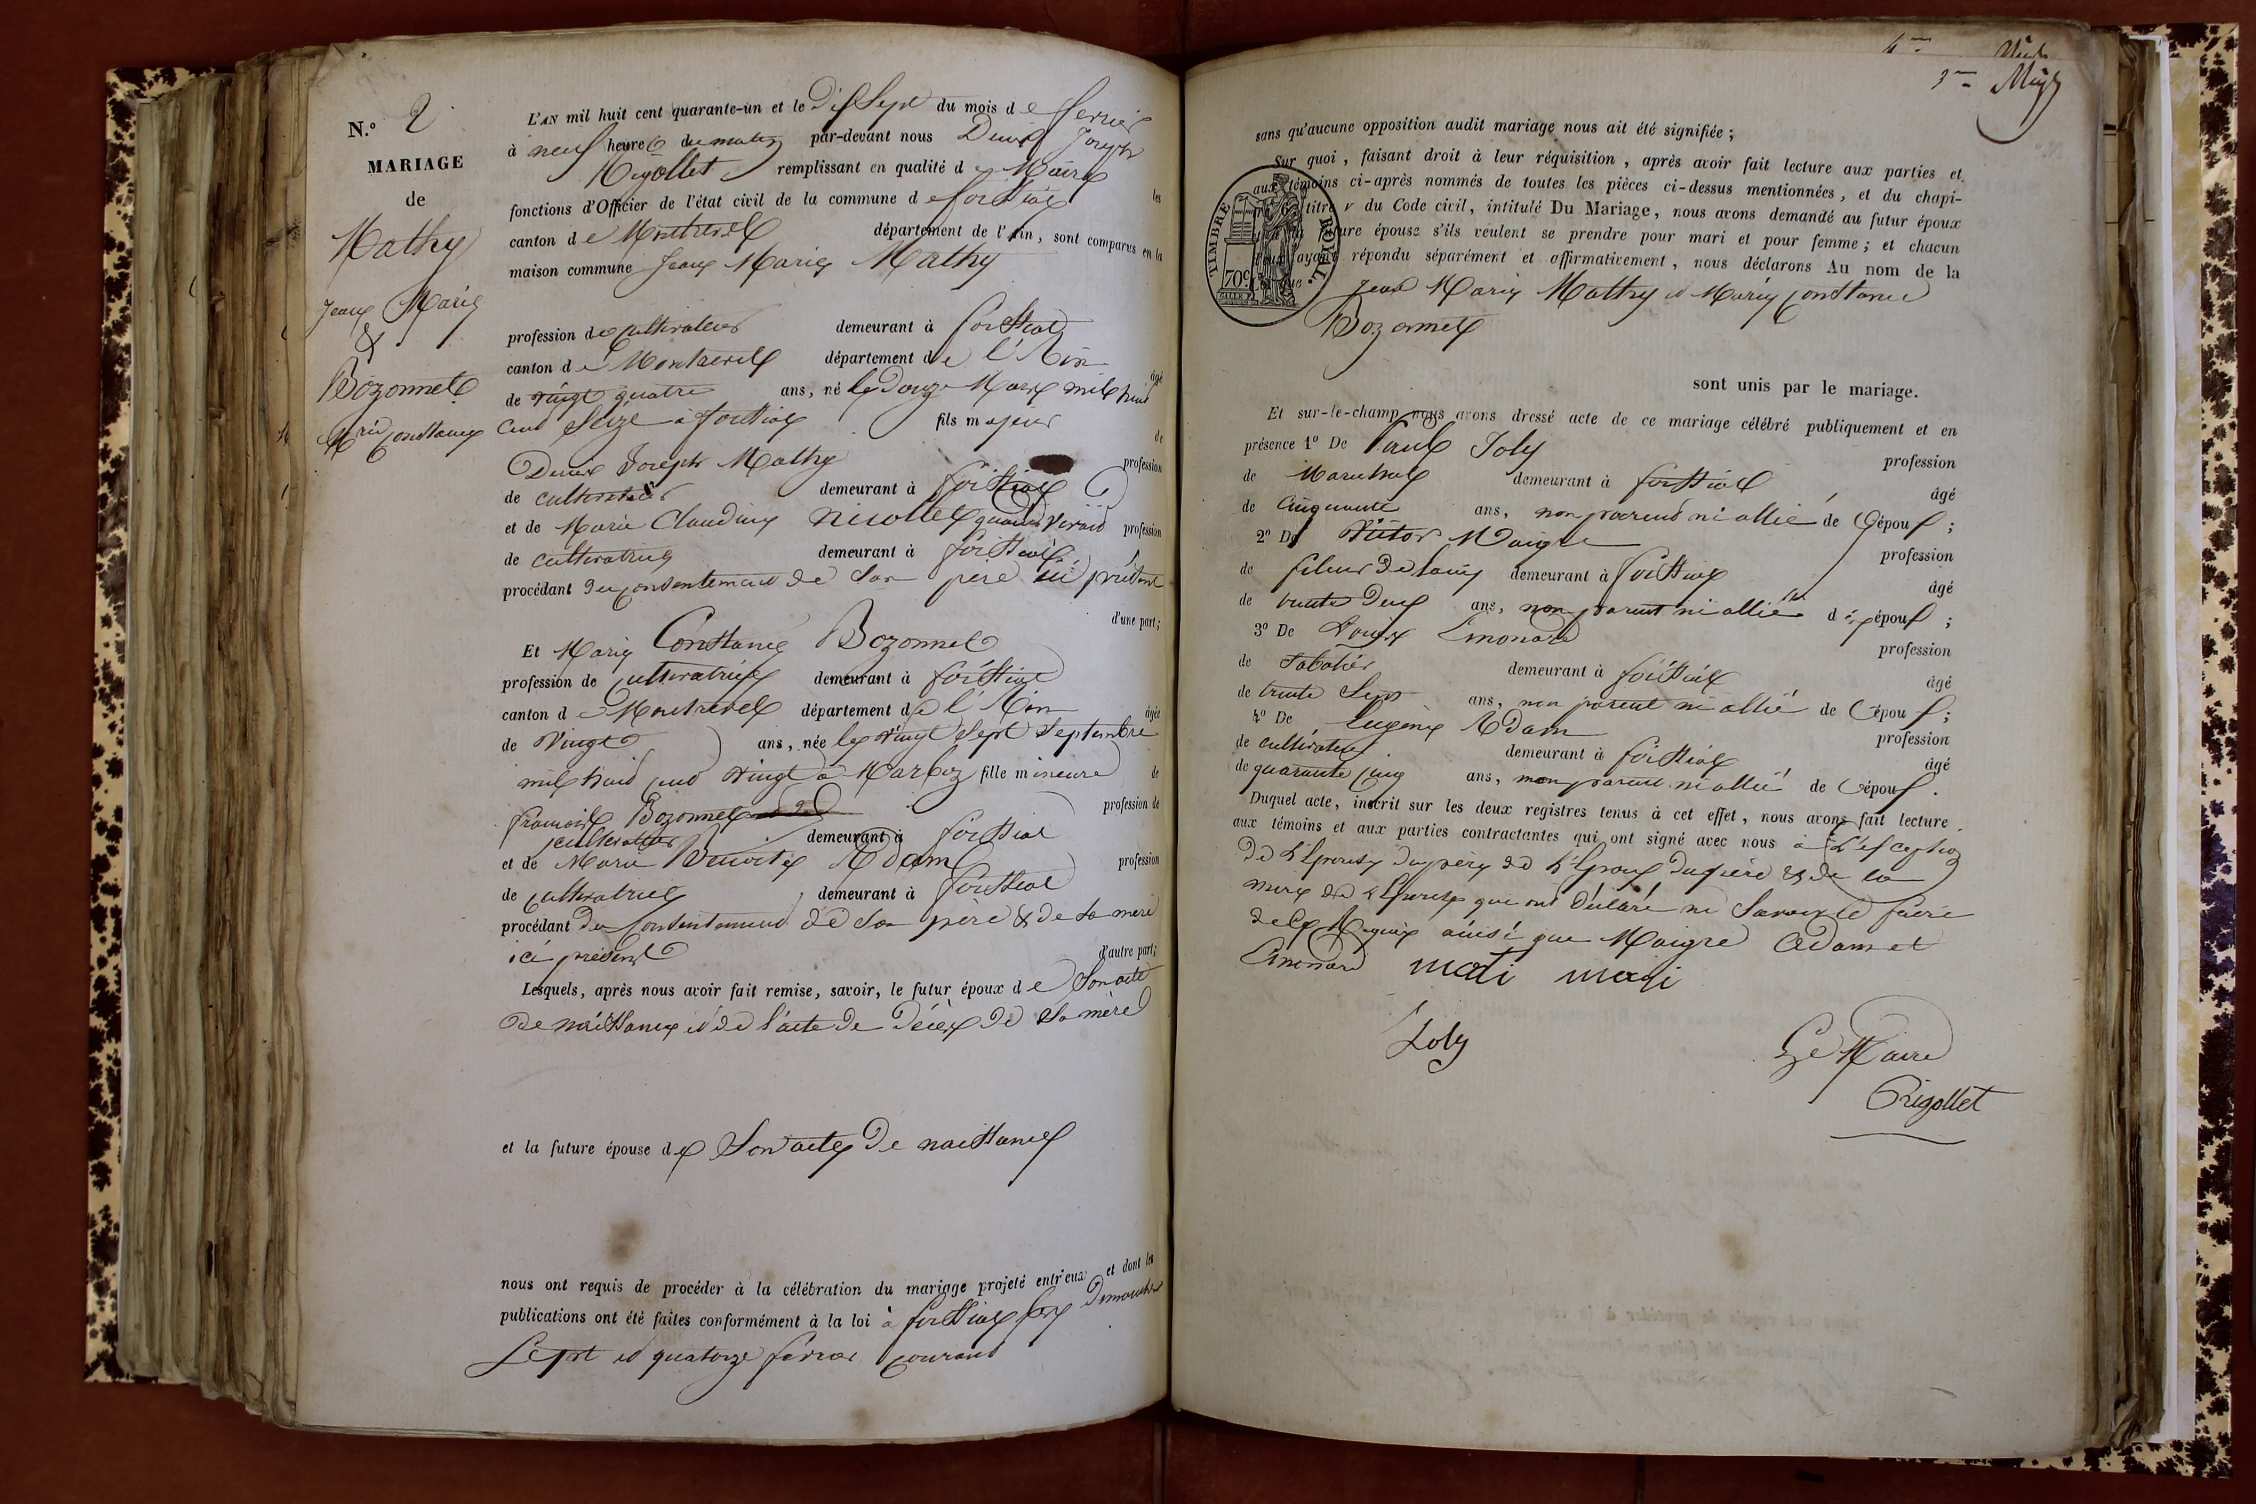 N.º 2
MARIAGE
de
Mathy
Jean Marie
&
Bozonnet
Mrie Constance
L'AN mil huit cent quarante-un et le dix Sept du mois de fevrier
à neuf heure du matin par-devant nous Denis Joseph
Rigollet remplissant en qualité de Maire les
fonctions d'Officier de l'état civil de la commune de foissiat
canton de Montrevel département de l'Ain, sont comparus en la
maison commune Jean Marie Mathy
profession de cultivateur demeurant à foissiat
canton de Montrevel département de l'Ain âgé
de vingt quatre ans, né le douze Mars mil huit
cent Seize à foissiat fils majeur de
Denis Joseph Mathy profession
de cultivateur demeurant à foissiat
et de Marie Claudine nicollet quand vivait profession
de cultivatrice demeurant à foissiat
procédant du consentement de son père ici présent
d'une part;
Et Marie Constance Bozonnet
profession de cultivatrice demeurant à foissiat
canton de Montrevel département de l'Ain âgée
de vingt ans, née le vingt sept septembre
mil huit cent vingt à Marboz fille mineure de
francois Bozonnet profession de
cultivateur demeurant à foissiat
et de Marie Benoite Adam profession
de cultivatrice demeurant à foissiat
procédant du consentement de son père & de sa mere
ici présent d'autre part;
Lesquels, après nous avoir fait remise, savoir, le futur époux de son acte
de naissance et de l'acte de décès de sa mère
et la future épouse de son acte de naissance
nous ont requis de procéder à la célébration du mariage projeté entr'eux et dont les
publications ont été faites conformément à la loi à foissiat les dimanches
sept et quatorze février courant
3me
sans qu'aucune opposition audit mariage nous ait été signifiée;
Sur quoi, faisant droit à leur réquisition, après avoir fait lecture aux parties et
aux témoins ci-après nommés de toutes les pièces ci-dessus mentionnées, et du chapi-
titre v du Code civil, intitulé Du Mariage, nous avons demandé au futur époux
future épouse s'ils veulent se prendre pour mari et pour femme; et chacun
ayant répondu séparément et affirmativement, nous déclarons Au nom de la
TIMBRE ROYAL
70c
Jean Marie Mathy et Marie Constance
Bozonnet
sont unis par le mariage.
Et sur-le-champ nous avons dressé acte de ce mariage célébré publiquement et en
présence 1º De Paul Joly profession
de Marechal demeurant à foissiat âgé
de cinquante ans, non parent ni allié de l'époux;
2º De Victor Maigre profession
de fileur de laine demeurant à foissiat âgé
de trente deux ans, non parent ni allié de l'époux;
3º De Louis Emonard profession
de sabotier demeurant à foissiat âgé
de trente Sept ans, non parent ni allié de l'époux;
4º De Eugène Adam profession
de cultivateur demeurant à foissiat âgé
de quarante cinq ans, non parent ni allié de l'époux.
Duquel acte, inscrit sur les deux registres tenus à cet effet, nous avons fait lecture
aux témoins et aux parties contractantes qui ont signé avec nous à l'exception
de l'Epouse du père de l'Epoux du père & de la
mère de l'Epouse qui ont déclaré ne savoir le faire
de ce requis ainsi que Maigre Adam et
Emonard mati mari
Joly
Le Maire
Rigollet